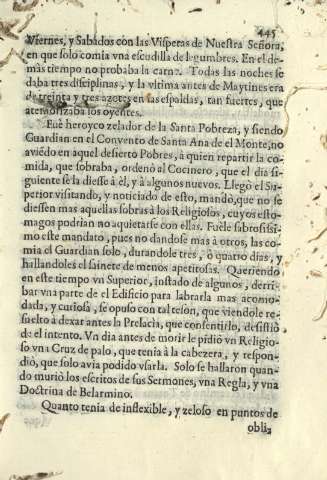 445
Viernes, y Sabados con las Visperas de Nuestra Señora,
en que solo comia vna escudilla de legumbres. En el de-
màs tiempo no probaba la carne. Todas las noches se
daba tres disciplinas, y la vltima antes de Maytines era
de treinta y tres azotes en las espaldas, tan fuertes, que
atemorizaba los oyentes.
Fuè heroyco zelador de la Santa Pobreza, y siendo
Guardian en el Convento de Santa Ana de el Monte, no
aviẽdo en aquel desierto Pobres, à quien repartir la co-
mida, que sobraba, ordenò al Cocinero, que el dia si-
guiente se la diesse à èl, y à algunos nuevos. Llegò el Su-
perior visitando, y noticiado de esto, mandò, que no se
diessen mas aquellas sobras à los Religiosos, cuyos esto-
magos podrian no aquietarse con ellas. Fuèle sabrosissi-
mo este mandato, pues no dandose mas à otros, las co-
mia el Guardian solo, durandole tres, ò quatro dias, y
hallandoles el sainete de menos apetitosas. Queriendo
en este tiempo vn Superior, instado de algunos, derri-
bar vna parte de el Edificio para labrarla mas acomo-
dada, y curiosa, se opuso con tal tesòn, que viendole re-
suelto à dexar antes la Prelacia, que consentirlo, desistiò
de el intento. Vn dia antes de morir le pidiò vn Religio-
so vna Cruz de palo, que tenia à la cabezera, y respon-
diò, que solo avia podido vsarla. Solo se hallaron quan-
do muriò los escritos de sus Sermones, vna Regla, y vna
Doctrina de Belarmino.
Quanto tenia de inflexible, y zeloso en puntos de
obli-